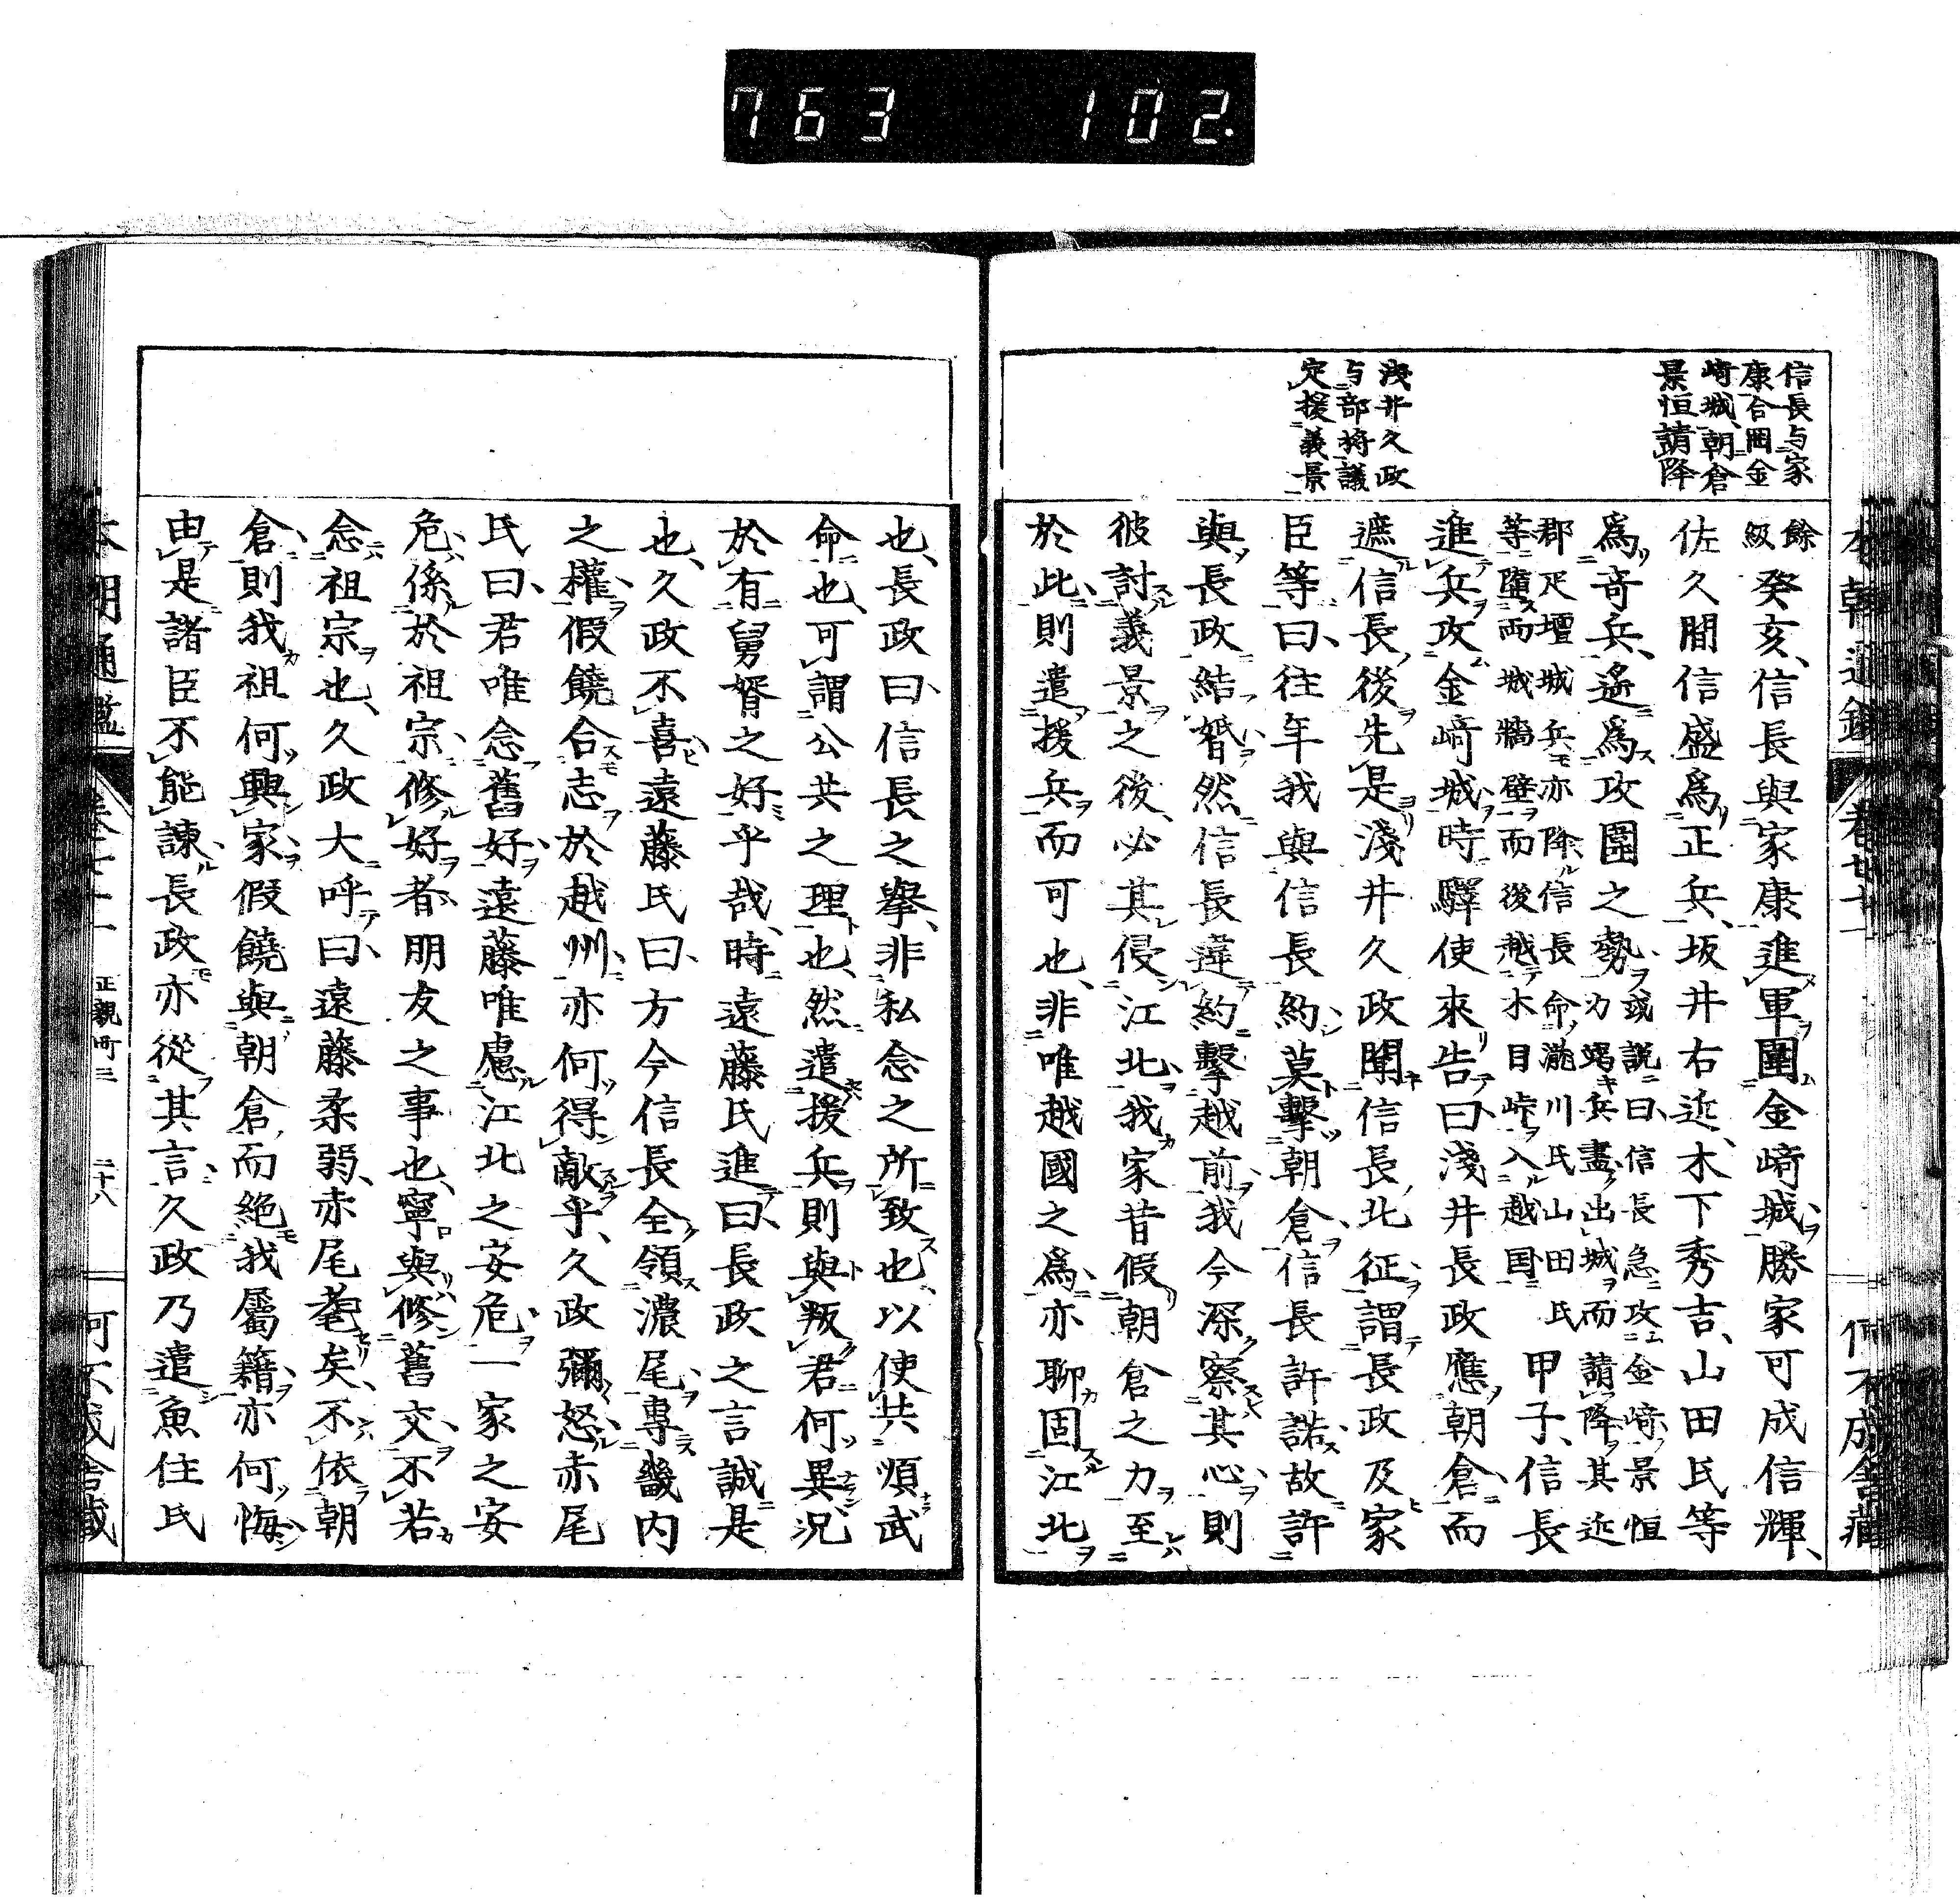 763 102.
信長与家
康合囲金
崎城、朝倉
景恒請降
浅井久政
与部将議
定援義景
餘級癸亥、信長與家康進軍圍金﨑城、勝家可成信輝、
佐久間信盛爲正兵、坂井右近、木下秀吉、山田氏等
爲竒兵、遙爲攻圍之勢、或説曰、信長急攻金﨑、景恒
力竭兵盡、出城而請降、其近
郡疋壇城兵亦降、信長命瀧川氏山田氏
等墮両城牆壁、而後越木目峠入越国
甲子、信長
進兵攻金﨑城、時驛使來告曰、淺井長政應朝倉、而
遮信長後、先是淺井久政聞信長北征、謂長政及家
臣等曰、往年我與信長約、莫擊朝倉、信長許諾、故許
與長政結婚、然信長違約擊越前、我今深察其心、則
彼討義景之後、必其侵江北、我家昔假朝倉之力至
於此、則遣援兵而可也、非唯越國之爲、亦聊固江北
也、長政曰、信長之擧、非私念之所致也、以使共順武
命也、可謂公共之理也、然遣援兵、則與叛君何異、况
於有舅婿之好乎哉、時遠藤氏進曰、長政之言誠是
也、久政不喜、遠藤氏曰、方今信長全領濃尾、專畿内
之權、假饒合志於越州、亦何得敵乎、久政彌怒、赤尾
氏曰、君唯念舊好、遠藤唯慮江北之安危、一家之安
危、係於祖宗、修好者朋友之事也、寧與修舊交、不若
念祖宗也、久政大呼曰、遠藤柔弱、赤尾耄矣、不依朝
倉、則我祖何興家、假饒與朝倉、而絶我屬籍、亦何悔
由是諸臣不能諫、長政亦從其言、久政乃遣魚住氏
本朝通鑑
卷
正親町三
二十八
何不成舎蔵